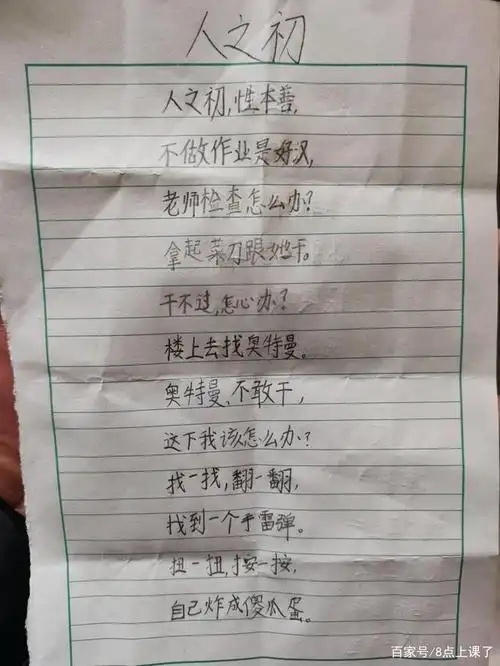 人之初
人之初,性本善,
不做作业是好汉,
老师检查怎么办?
拿起菜刀跟她干。
干不过,怎心办?
楼上去找奥特曼。
奥特曼,不敢干,
这下我该怎么办?
找一找,翻一翻,
找到一个手雷弹。
扭一扭,按一按,
自己炸成傻瓜蛋。
百家号/8点上课了